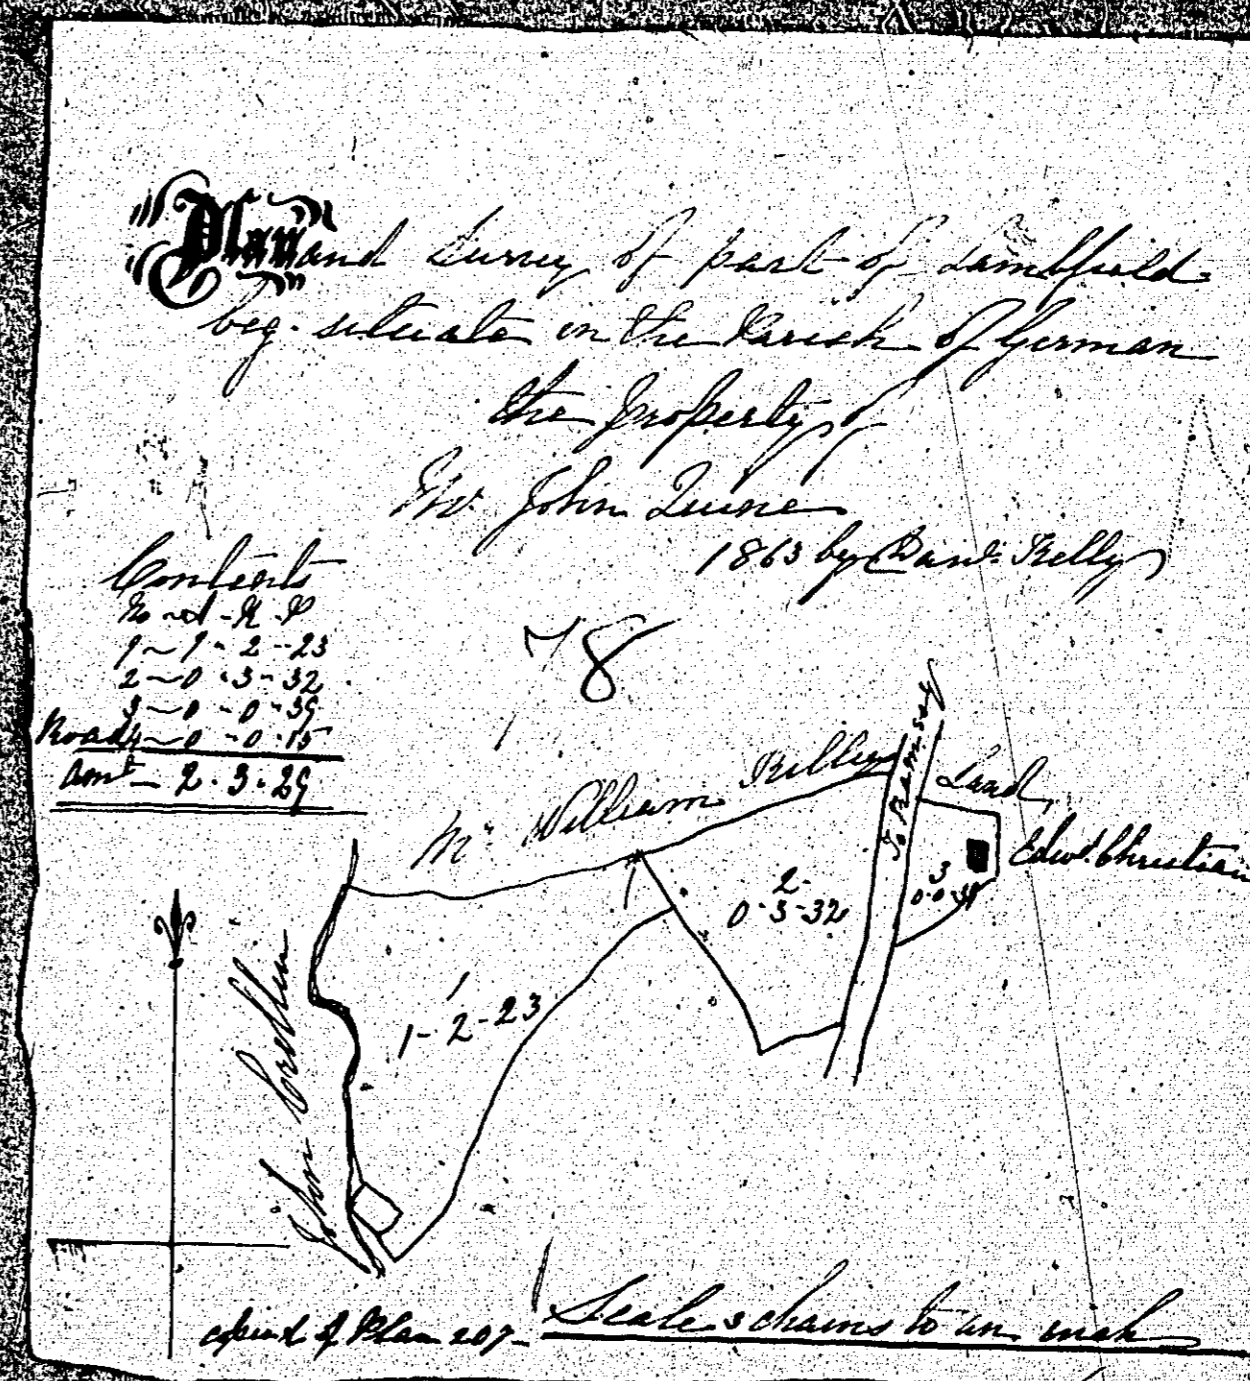 Plan and Survey of part of Lambfield
beg. situate in the Parish of German
the Property of
Mr. John Quine
1863 by Danl. Kelly
Contents
No - A - R - P
1 ~ 1 - 2 - 23
2 ~ 0 - 3 - 32
3 ~ 0 - 0 - 39
Road 4 ~ 0 - 0 - 15
Amt - 2 - 3 - 29
78
Mr. William Killey
To Ramsey
Land
Edwd. Christian
2
0-3-32
3
0-0-39
1
1-2-23
John
copied of Plan 207-
Scale 3 chains to an inch